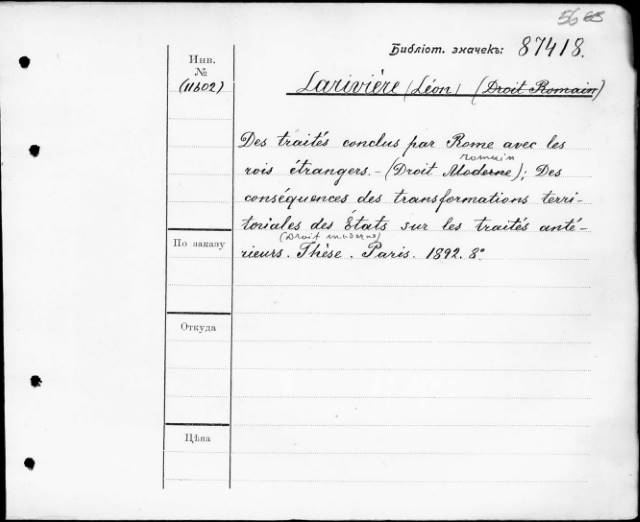 56 68
Библіот. значекъ: 87418.
Инв.
№
(11602)
Larivière (Léon) (Droit Romain)
Des traités conclus par Rome avec les
romain
rois étrangers. - (Droit Moderne); Des
conséquences des transformations terri-
toriales des États sur les traités anté-
(Droit moderne)
rieurs. Thèse. Paris. 1892. 8°
По заказу
Откуда
Цѣна